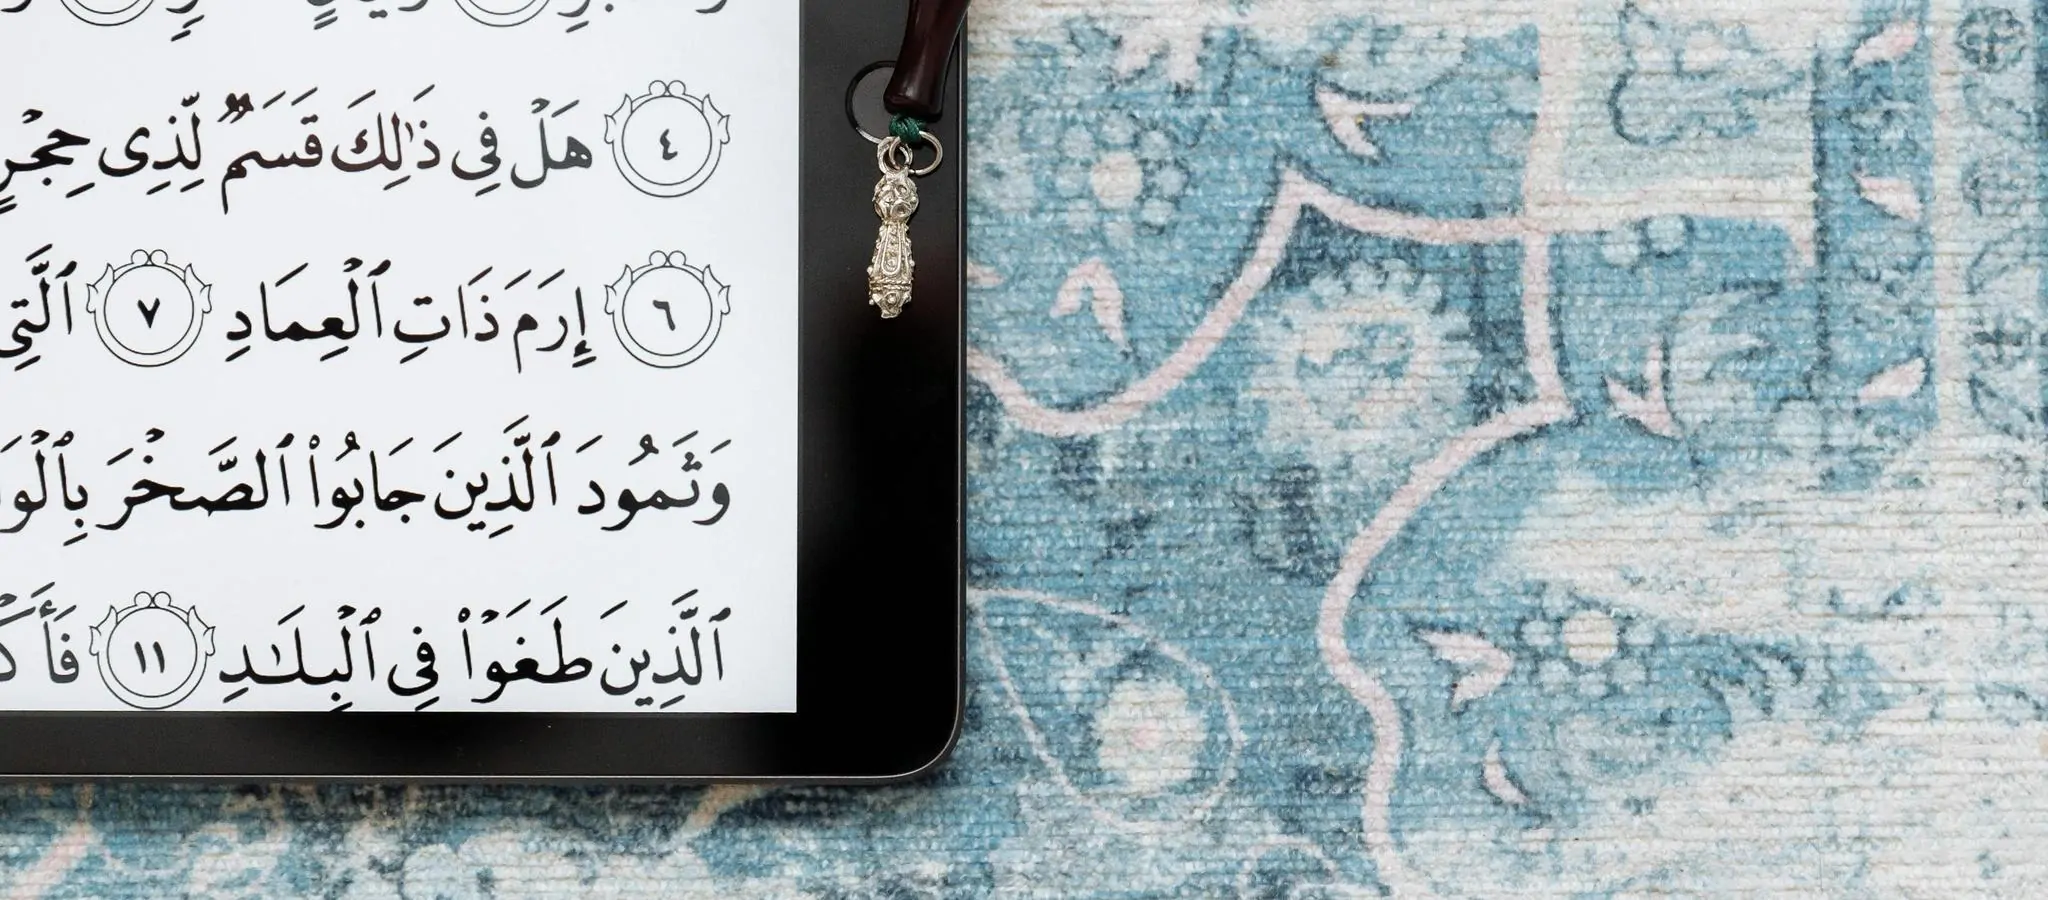 ٤ هَلْ فِى ذَٰلِكَ قَسَمٌ لِّذِى حِجْرٍ
٦ إِرَمَ ذَاتِ ٱلْعِمَادِ ٧ ٱلَّتِى
وَثَمُودَ ٱلَّذِينَ جَابُوا۟ ٱلصَّخْرَ
ٱلَّذِينَ طَغَوْا۟ فِى ٱلْبِلَـٰدِ ١١